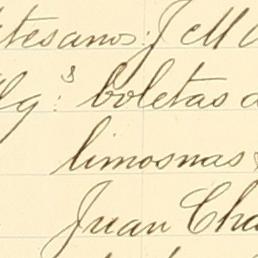 tesanos: J M
Alg:s boletas d
limosnas
Juan Cha